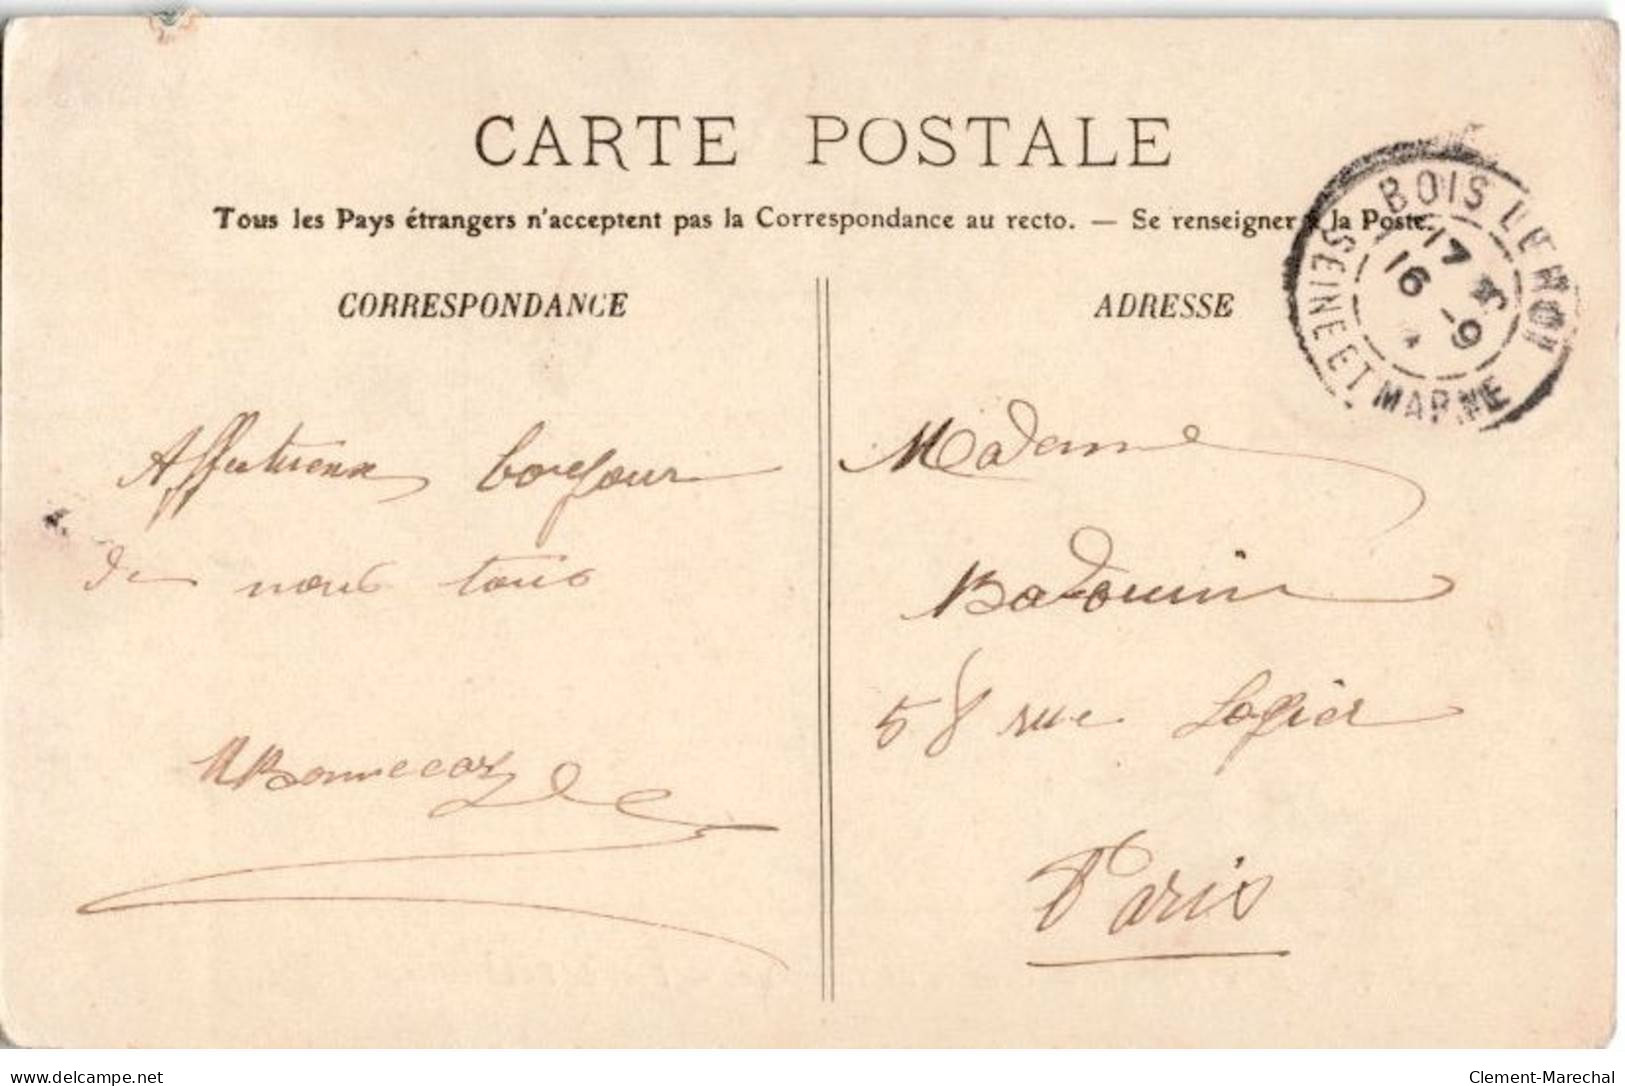 CARTE POSTALE
Tous les Pays étrangers n'acceptent pas la Correspondance au recto. — Se renseigner à la Poste.
CORRESPONDANCE
ADRESSE
BOIS LE ROI
SEINE ET MARNE
17
16 -9
Affectueux bonjour
de nous tous
Madame
Badouin
58 rue Logier
Paris
delcampe.net
Clement-Marechal